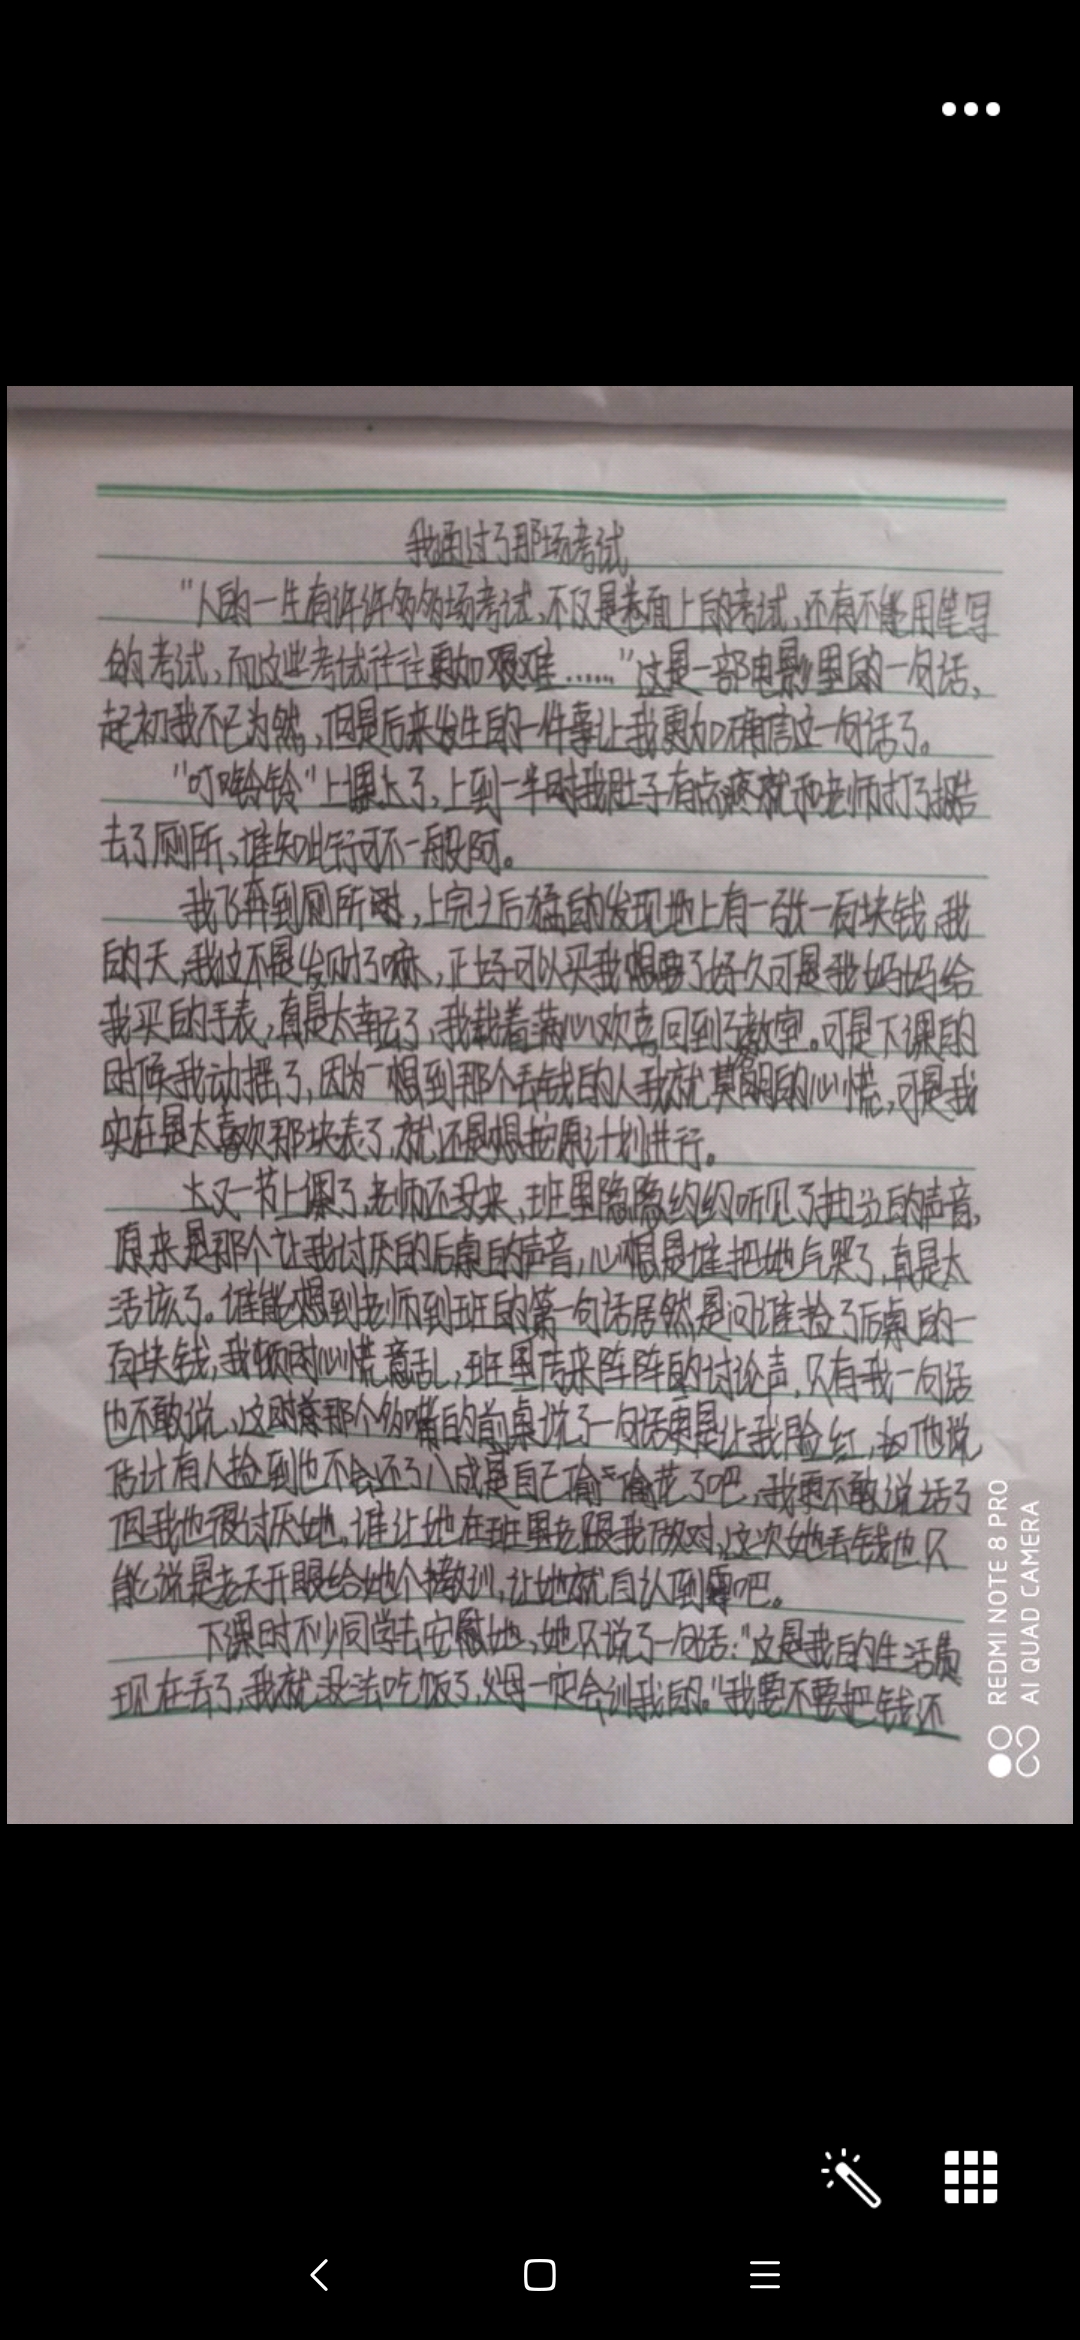 我通过了那场考试
"人的一生有许许多多场考试,不仅是卷面上的考试,还有不能用笔写
的考试,而这些考试往往更加艰难……"这是一部电影里的一句话,
起初我不已为然,但是后来发生的一件事让我更加确信这一句话了。
"叮呤铃铃"上课了,上到一半时我肚子有点疼就和老师打了报告
去了厕所,谁知此行可不一般阿。
我飞奔到厕所,上完之后猛的发现地上有一张一百块钱,我
的天,我这不是发财了嘛,正好可以买我想要了好久可是我妈妈给
我买的手表,真是太幸运了,我载着满心欢喜回到了教室。可是下课的
时候我动摇了,因为一想到那个丢钱的人我就莫明的心慌,可是我
实在是太喜欢那块表了,就还是想按原计划进行。
又一节上课了,老师还没来,班里隐隐约约听见了抽泣的声音,
原来是那个让我讨厌的后桌的声音,心想是谁把她气哭了,真是太
活该了。谁能想到老师到班的第一句话居然是问谁捡了后桌的一
百块钱,我顿时心慌意乱,班里传来阵阵的讨论声,只有我一句话
也不敢说,这时那个多嘴的前桌说了一句话更是让我脸红,他说
估计有人捡到也不会还了八成是自己偷偷花了吧,我更不敢说话了
但我也很讨厌她,谁让她在班里老跟我做对,这次她丢钱也只
能说是老天开眼给她个教训,让她就自认到霉吧。
下课时不少同学去安慰她,她只说了一句话:"这是我的生活费
现在丢了,我就没法吃饭了,父母一定会训我的。"我要不要把钱还
REDMI NOTE 8 PRO
AI QUAD CAMERA